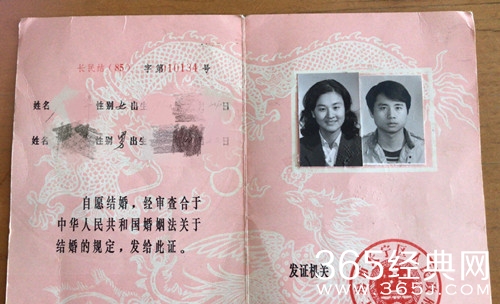 (85) 字第10134号
姓名 性别女出生 日
姓名 性别男出生 日
自愿结婚，经审查合于
中华人民共和国婚姻法关于
结婚的规定，发给此证。
发证机关
365经典网
www.365j.com